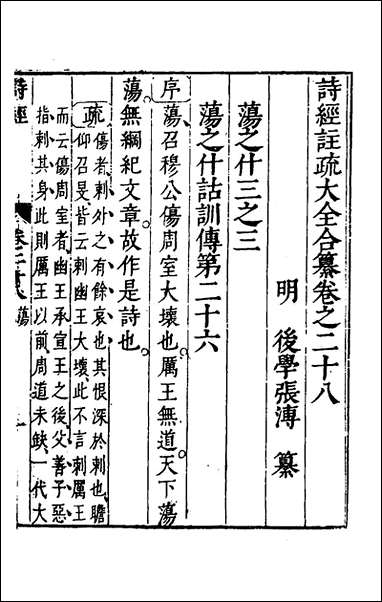 詩經註疏大全合纂卷之二十八
明　後學張溥　纂
蕩之什三之三
蕩之什詁訓傳第二十六
序蕩召穆公傷周室大壞也厲王無道天下蕩
蕩無綱紀文章故作是詩也
疏傷者刺外之有餘哀也其恨深於刺也瞻
仰召旻皆云刺幽王大壞此不言刺厲王
而云傷周室者幽王承宣王之後父善子惡
指刺其身此則厲王以前周道未缺一代大
詩經
卷二十八　蕩